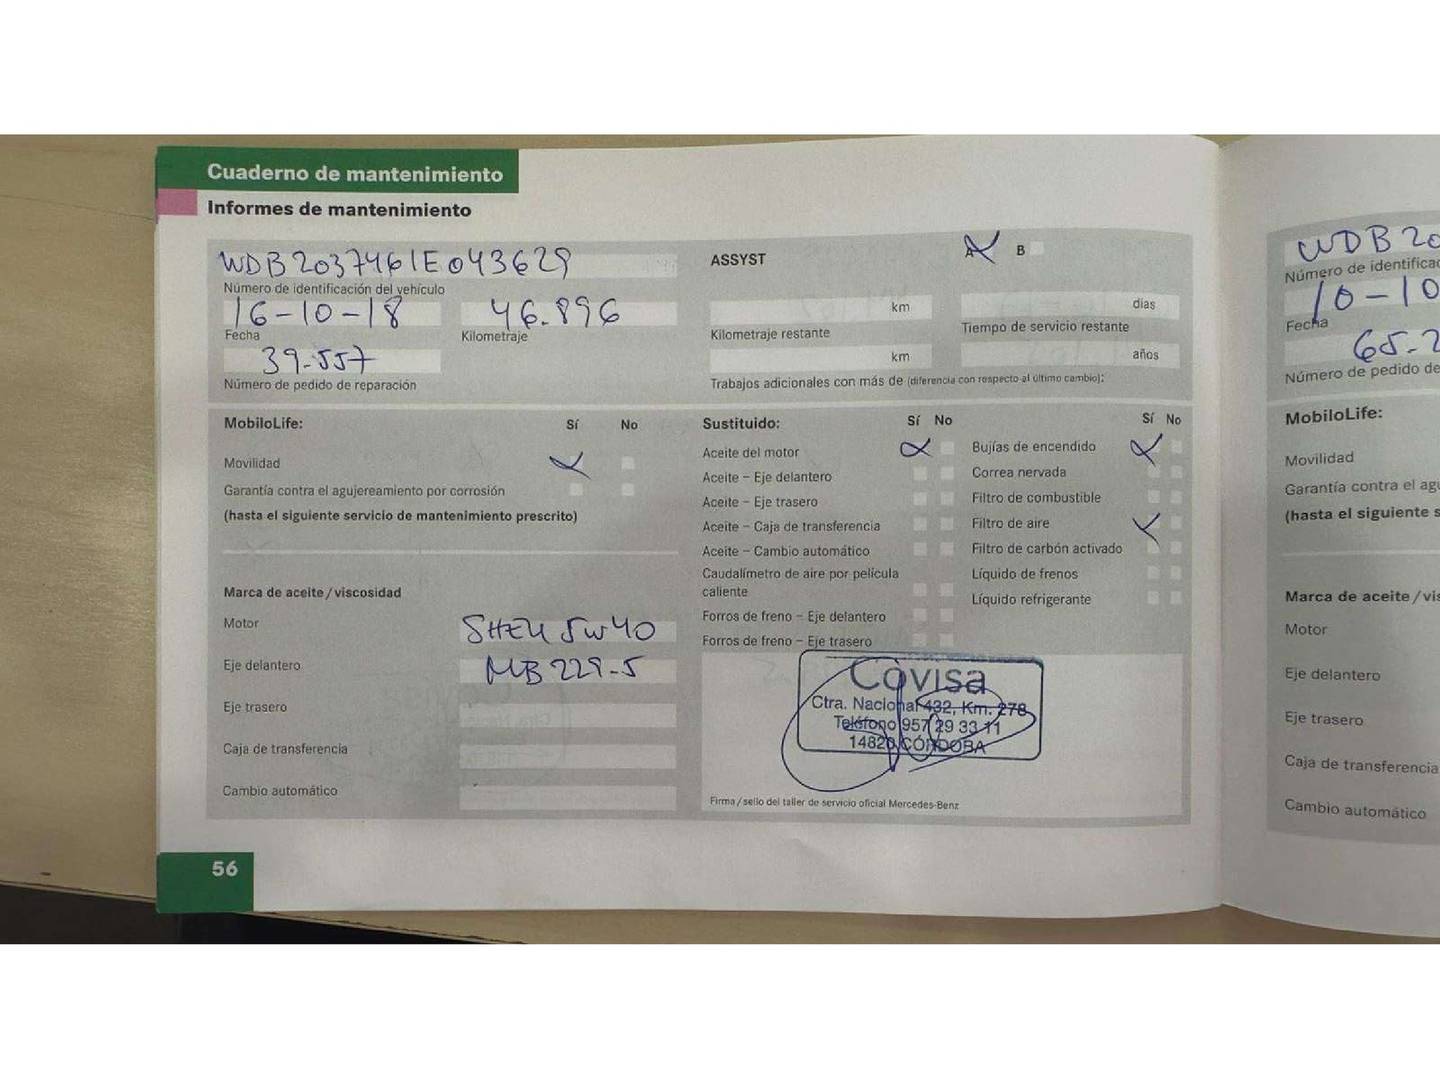 Cuaderno de mantenimiento
Informes de mantenimiento
WDB2037461E043629
Número de identificación del vehículo
16-10-18 46.896
Fecha Kilometraje
39.557
Número de pedido de reparación
ASSYST A B
km días
Kilometraje restante Tiempo de servicio restante
km años
Trabajos adicionales con más de (diferencia con respecto al último cambio):
MobiloLife: Sí No
Movilidad
Garantía contra el agujereamiento por corrosión
(hasta el siguiente servicio de mantenimiento prescrito)
Marca de aceite / viscosidad
Motor SHELL 5W40
Eje delantero MB 229-5
Eje trasero
Caja de transferencia
Cambio automático
Sustituido: Sí No
Aceite del motor
Aceite – Eje delantero
Aceite – Eje trasero
Aceite – Caja de transferencia
Aceite – Cambio automático
Caudalímetro de aire por película
caliente
Forros de freno – Eje delantero
Forros de freno – Eje trasero
Sí No
Bujías de encendido
Correa nervada
Filtro de combustible
Filtro de aire
Filtro de carbón activado
Líquido de frenos
Líquido refrigerante
Covisa
Ctra. Nacional 432, Km. 278
Teléfono 957 29 33 11
14820 CÓRDOBA
Firma / sello del taller de servicio oficial Mercedes-Benz
56
WDB20
Número de identifica
10-10
Fecha
65.2
Número de pedido de
MobiloLife:
Movilidad
Garantía contra el agu
(hasta el siguiente s
Marca de aceite / vis
Motor
Eje delantero
Eje trasero
Caja de transferencia
Cambio automático